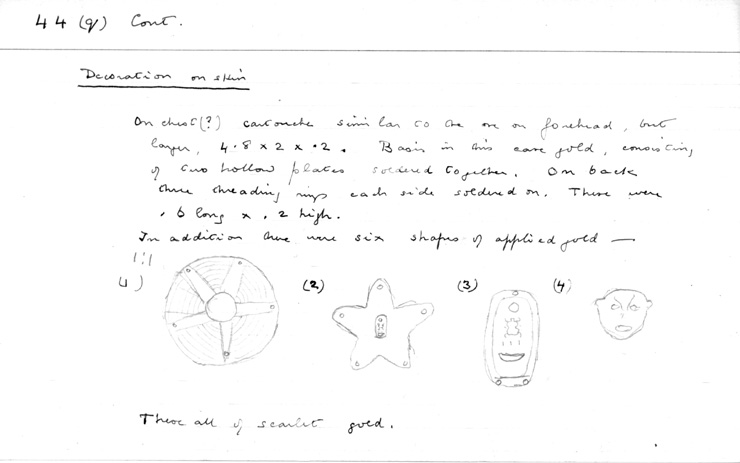 44 (q) Cont.
Decoration on skin
On chest (?) cartouche similar to the one on forehead, but
larger, 4.8 x 2 x .2. Basis in this case gold, consisting
of two hollow plates soldered together. On back
three threading rings each side soldered on. These were
.6 long x .2 high.
In addition there were six shapes of applied gold —
1:1
(1) (2) (3) (4)
These all of scarlet gold.